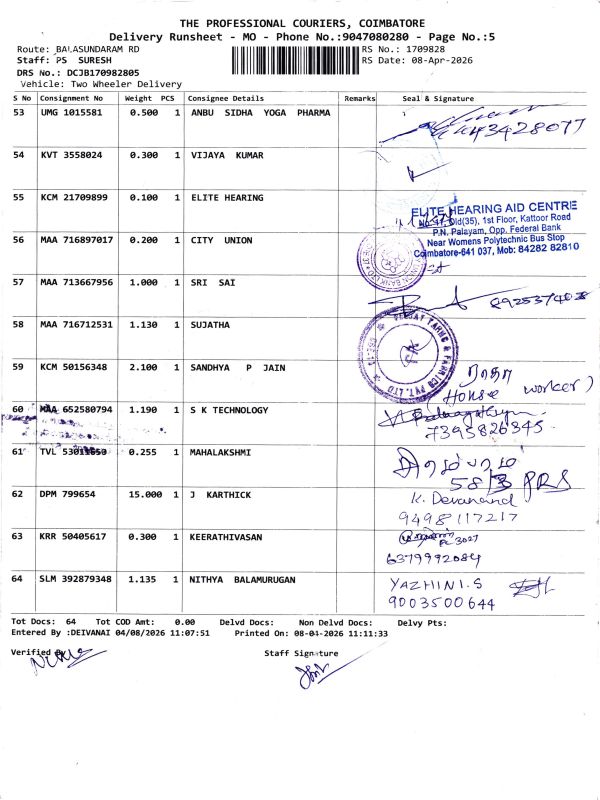 THE PROFESSIONAL COURIERS, COIMBATORE
Delivery Runsheet - MO - Phone No.:9047080280 - Page No.:5
Route: BALASUNDARAM RD
RS No.: 1709828
Staff: PS SURESH
RS Date: 08-Apr-2026
DRS No.: DCJB170982805
Vehicle: Two Wheeler Delivery
S No Consignment No Weight PCS Consignee Details Remarks Seal & Signature
53 UMG 1015581 0.500 1 ANBU SIDHA YOGA PHARMA
54 KVT 3558024 0.300 1 VIJAYA KUMAR
55 KCM 21709899 0.100 1 ELITE HEARING
ELITE HEARING AID CENTRE
No.47, Old(35), 1st Floor, Kattoor Road
P.N. Palayam, Opp. Federal Bank
Near Womens Polytechnic Bus Stop
Coimbatore-641 037, Mob: 84282 82810
56 MAA 716897017 0.200 1 CITY UNION
57 MAA 713667956 1.000 1 SRI SAI
58 MAA 712531 1.130 1 SUJATHA
59 KCM 50156348 2.100 1 SANDHYA P JAIN
ராதா
House worker)
60 MAA 652580794 1.190 1 S K TECHNOLOGY
7395826345
61 TVL 1.0.255 1 MAHALAKSHMI
58/3 PRS
62 DPM 799654 15.000 1 J KARTHICK
K. Devanand
9498117217
63 KRR 50405617 0.300 1 KEERATHIVASAN
PC 3027
6379992084
64 SLM 392879348 1.135 1 NITHYA BALAMURUGAN
YAZHINI.S
9003500644
Tot Docs: 64 Tot COD Amt: 0.00 Delvd Docs: Non Delvd Docs: Delvy Pts:
Entered By :DEIVANAI 04/08/2026 11:07:51 Printed On: 08-04-2026 11:11:33
Verified By
Staff Signature